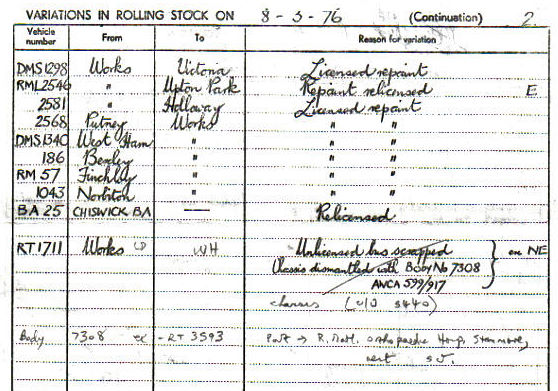 VARIATIONS IN ROLLING STOCK ON 8-3-76 (Continuation) 2.
Vehicle number From To Reason for variation
DMS1298 Works Victoria Licensed repaint
RML2546 " Upton Park Repaint relicensed E
2581 " Holloway Licensed repaint
2568 Putney Works " "
DMS1340 West Ham " " "
186 Bexley " " "
RM 57 Finchley " " "
1043 Norbiton " " "
BA 25 CHISWICK BA — Relicensed
RT1711 Works WH Unlicensed bus scrapped } on NE
Chassis dismantled with Body No 7308
AWCA 599/917
chassis (U/D 3440)
Body 7308 ex - RT 3593 Part → R. Natl. Orthopaedic Hosp, Stanmore,